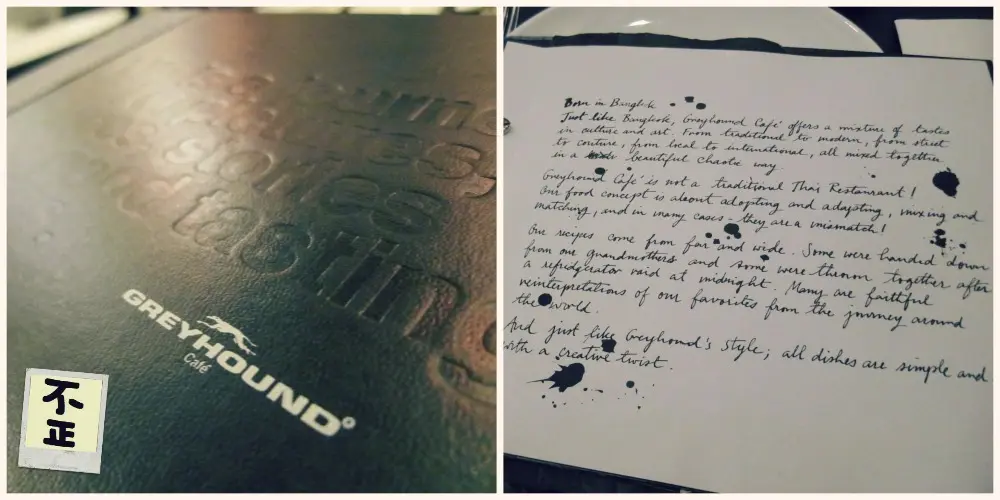 GREYHOUND
Café
不
正
Born in Bangkok
Just like Bangkok, Greyhound Café offers a mixture of tastes
in culture and art. From traditional to modern, from street
to couture, from local to international, all mixed together
in a beautiful chaotic way
Greyhound Café is not a traditional Thai Restaurant!
Our food concept is about adopting and adapting, mixing and
matching, and in many cases - they are a mismatch!
Our recipes come from far and wide. Some were handed down
from our grandmothers and some were thrown together after
a refridgerator raid at midnight. Many are faithful
reinterpretations of our favorites from the journey around
the world.
And just like Greyhound's style; all dishes are simple and
with a creative twist.